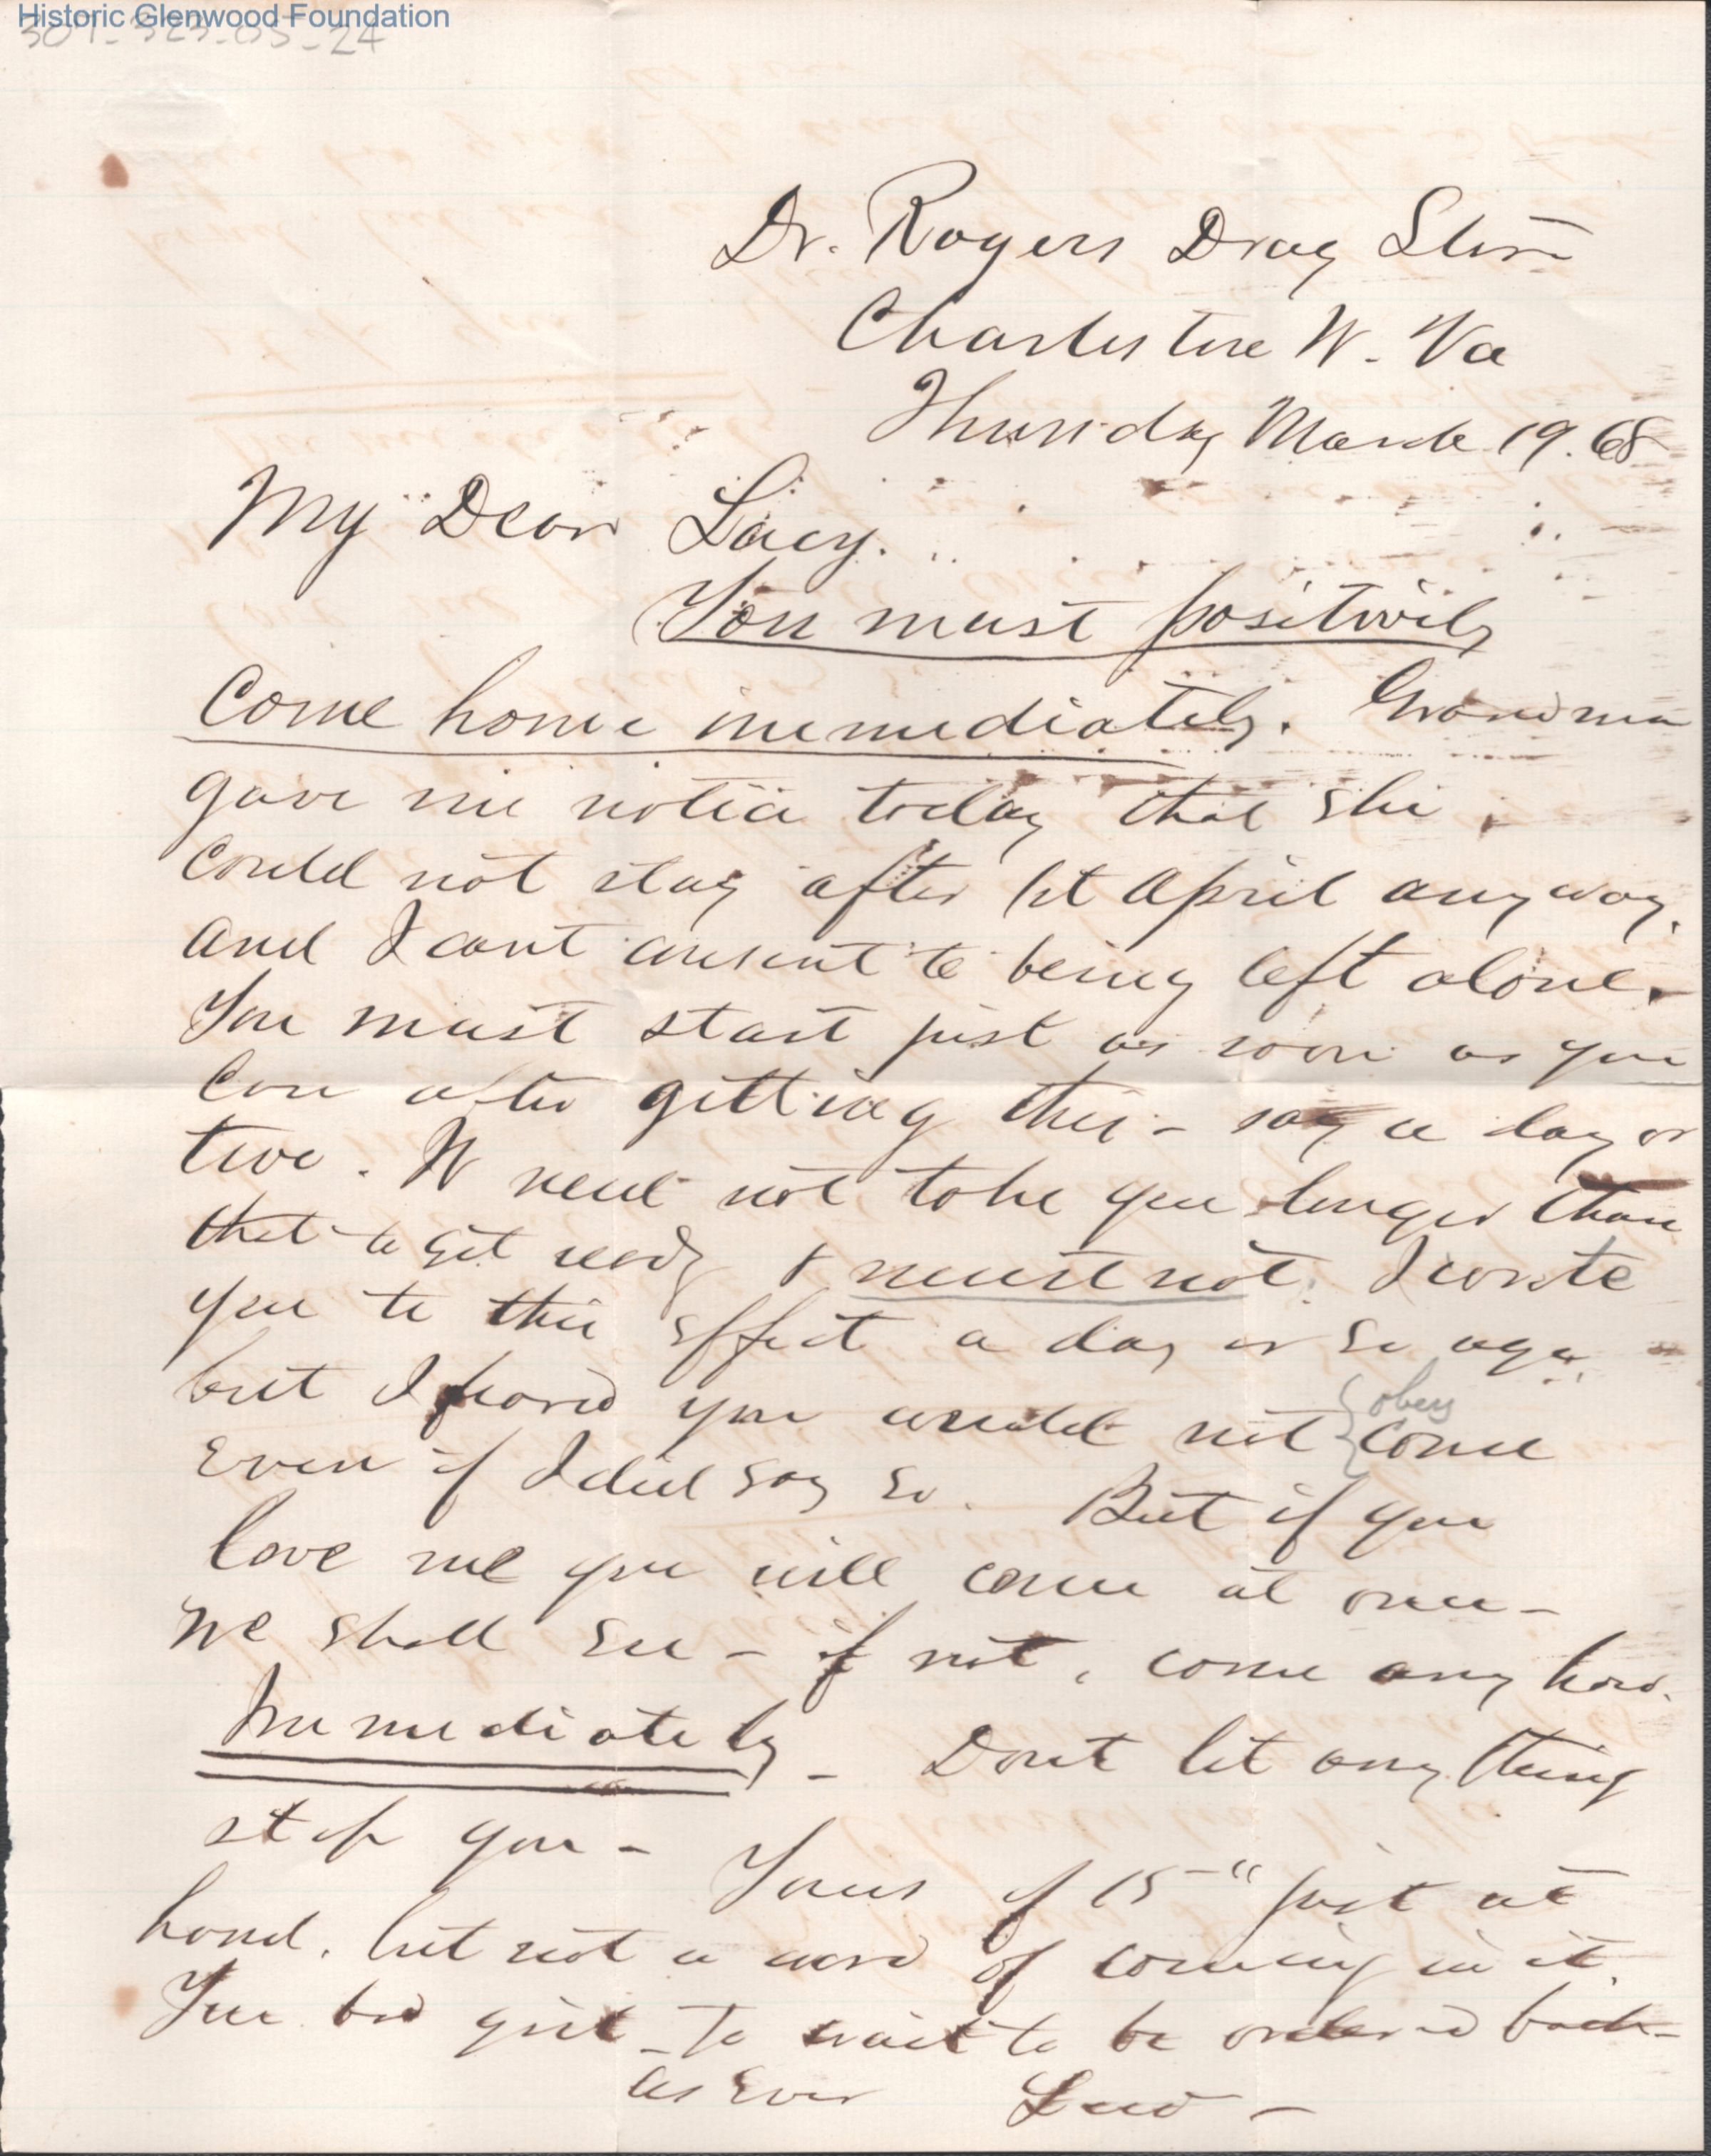 Historic Glenwood Foundation
307-323-05-24
Dr. Rogers Drug Store
Charleston W. Va
Thursday March 19. 68
My Dear Lucy.
You must positively
Come home immediately. Grandma
gave me notice today that she
could not stay after 1st April anyway.
and I cant consent to being left alone.
You must start just as soon as you
can after getting this - say a day or
two. It need not take you longer than
that to get ready & must not. I wrote
you to this effect a day or so ago.
but I feared you would not come
obey
even if I did say so. But if you
love me you will come at once -
we shall see - if not, come any how.
Immediately - Dont let any thing
stop you - Yours of 15" just at
hand. but not a word of coming in it.
You bad girl - to wait to be ordered back -
As Ever